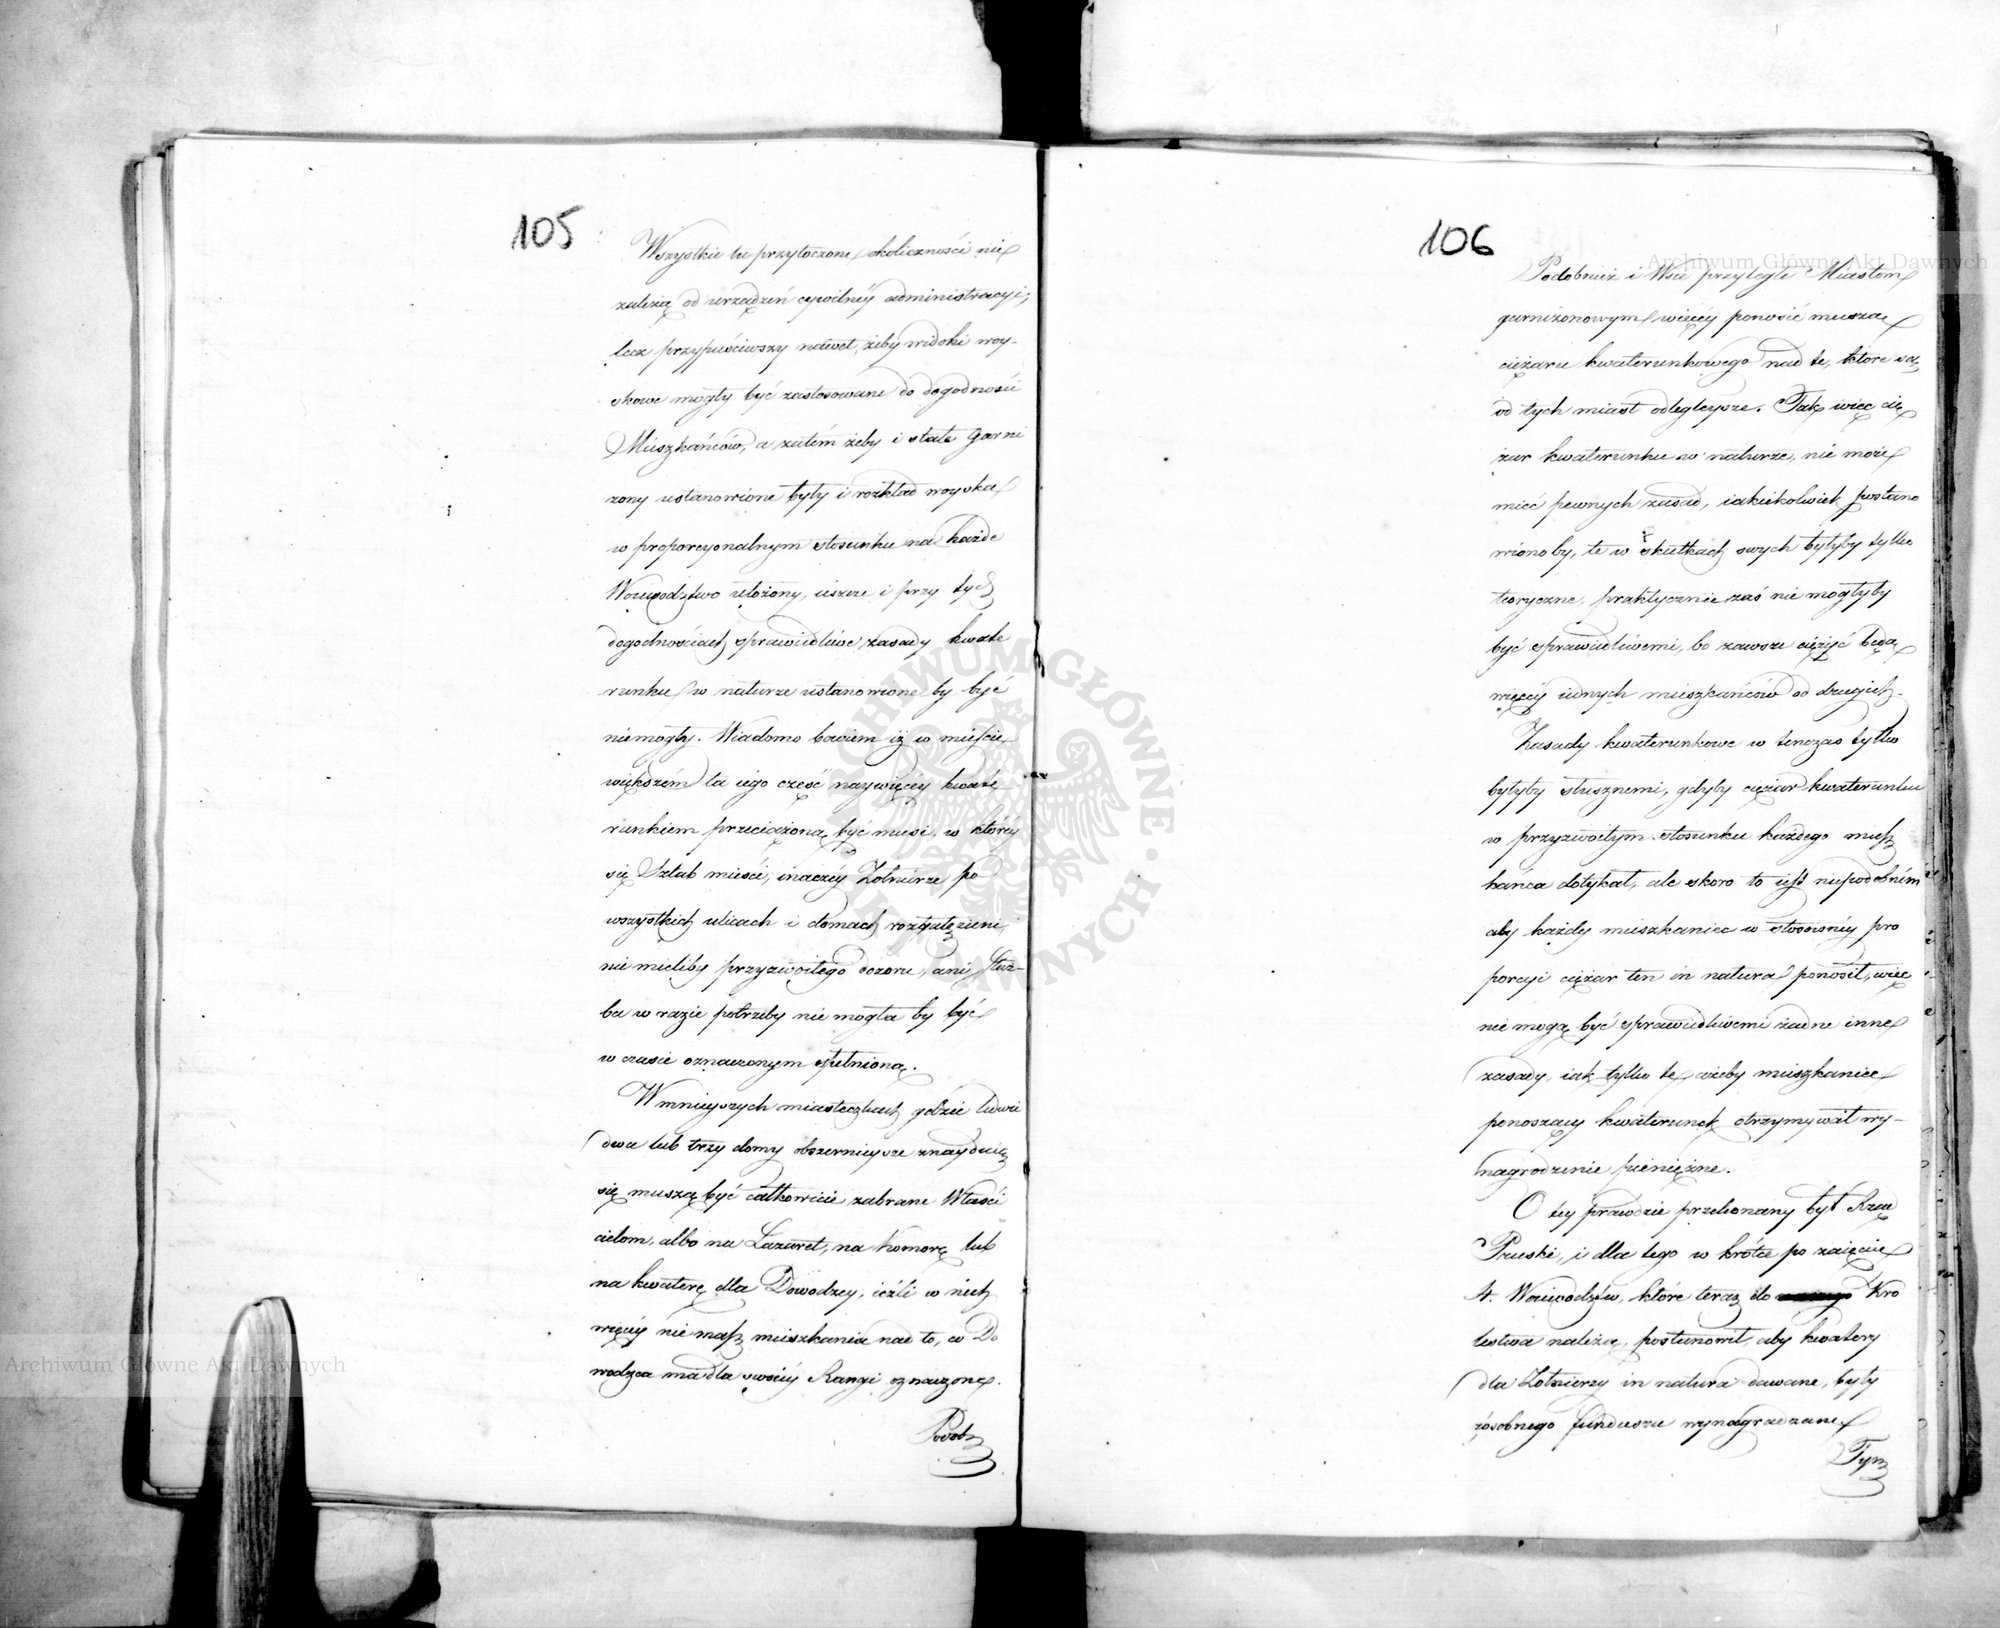 105
Wszystkie tu przytoczone okoliczności nie
zależą od urządzeń cywilnéy administracyi;
lecz przypuściwszy nawet, żeby widoki woy-
skowe mogły być zastosowane do dogodności
Mieszkańców, a zatém żeby i stałe garni
zony ustanowione były i rozkład woyska
w proporcyonalnym stosunku na każde
Woiewodztwo ułożony, ieszcze i przy tych
dogodnościach sprawiedliwe zasady kwate
runku w naturze ustanowione by być
niemogły. Wiadomo bowiem iż w mieyscie
większém ta iego część naywięcéy kwate
runkiem przeciążoną być musi, w któréy
się Sztab mieści, inaczéy Żołnierze po
wszystkich ulicach i domach rozgałęzieni
nie mieliby przyzwoitego dozoru, ani służ-
ba w razie potrzeby nie mogła by być
w czasie oznaczonym spełnioną.
W mnieyszych miasteczkach gdzie ledwie
dwa lub trzy domy obszernieysze znayduią
się muszą być całkowicie zabrane Właści
cielom, albo na Lazaret, na Komorę lub
na kwaterę dla Dowodzcy, ieżli w nich
więcéy nie masz mieszkania nad to, co Do
wodzca ma dla swoiéy Rangi oznaczone.
Podob
106
Podobnież i Wsie przyległe Miastom
garnizonowym więcéy ponosić muszą
ciężaru kwaterunkowego nad te, które są
od tych miast odległeysze. Tak więc cię
żar kwaterunku w naturze, nie może
mieć pewnych zasad, iakiekolwiek postano
wionoby, te w skutkach swych byłyby tylko
teoryczne, praktycznie zaś nie mogłyby
być sprawiedliwemi, bo zawsze ciężyć będą
więcéy iednych mieszkańców od drugich.
Zasady kwaterunkowe w tenczas tylko
byłyby słusznemi, gdyby ciężar kwaterunku
w przyzwoitym stosunku każdego miesz
kańca dotykał, ale skoro to iest niepodobném
aby każdy mieszkaniec w stosownéy pro
porcyi ciężar ten in natura ponosił, więc
nie mogą być sprawiedliwemi żadne inne
zasady, iak tylko te, ażeby mieszkaniec
ponoszący kwaterunek otrzymywał wy-
nagrodzenie pieniężne.
O téy prawdzie przekonany był Rząd
Pruski, i dla tego w krótce po zaięciu
4. Woiewodztw, które teraz do Kro
lestwa należą, postanowił, aby kwatery
dla Żołnierzy in natura dawane, były
z osobnego funduszu wynagradzane.
Tym
Archiwum Główne Akt Dawnych
Archiwum Główne Akt Dawnych
ARCHIWUM GŁÓWNE AKT DAWNYCH